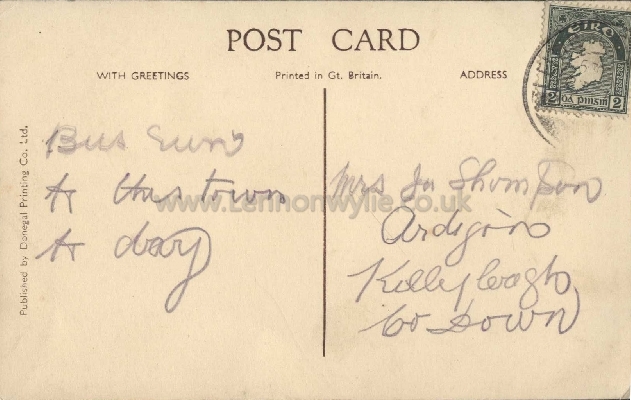 POST CARD
WITH GREETINGS
Printed in Gt. Britain.
ADDRESS
EIRE
2
2
Published by Donegal Printing Co., Ltd.
Bus Runs
to this town
to day
www.LennonWylie.co.uk
Mrs Jn Thompson
Ardigon
Killyleagh
Co Down